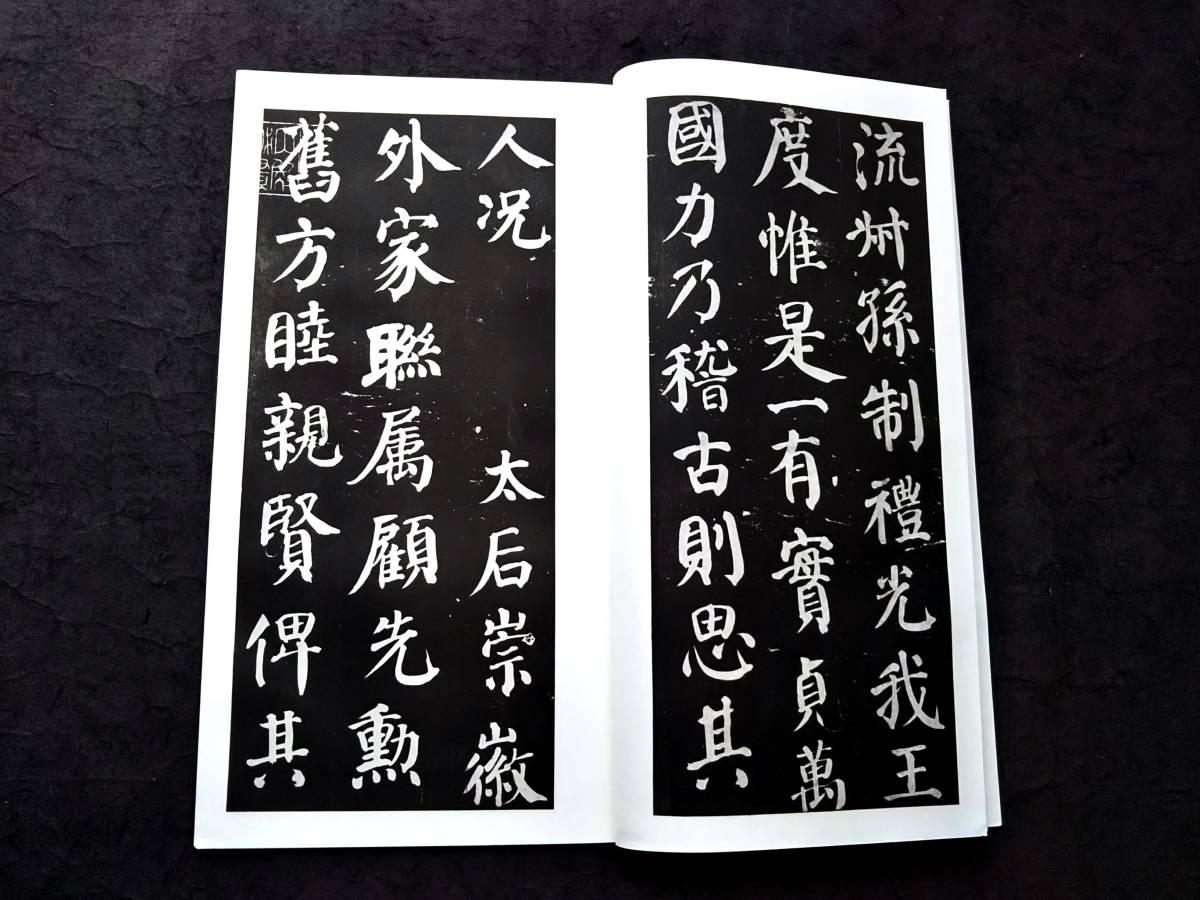 流叔孫制禮光我王
度惟是一有實貞萬
國力乃稽古則思其
人况　太后崇徽
外家聯属顧先勳
舊方睦親賢俾其